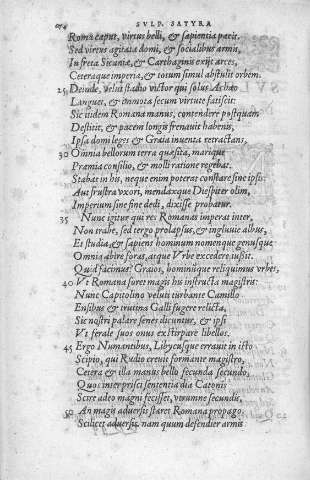 SVLP. SATYRA
Roma caput, virtus belli, & sapientia pacis.
Sed virtus agitata domi, & socialibus armis,
In freta Sicaniæ, & Carthaginis exijt arces,
Ceteraque imperia, & totum simul abstulit orbem.
25 Deinde, velut stadio victor qui solus Achæo
Languet, & immota secum virtute fatiscit:
Sic itidem Romana manus, contendere postquam
Destitit, & pacem longis frenauit habenis,
Ipsa domi leges & Graia inuenta retractans,
30 Omnia bellorum terra quæsita, marique
Præmia consilio, & molli ratione regebat.
Stabat in his, neque enim poterat constare sine ipsis:
Aut frustra vxori, mendaxque Diespiter olim,
Imperium sine fine dedi, dixisse probatur.
35 Nunc igitur qui res Romanas imperat inter,
Non trabe, sed tergo prolapsus, & ingluuie albus,
Et studia, & sapiens hominum nomenque genusque
Omnia abire foras, atque Vrbe excedere iussit.
Quid facimus? Graios, hominúque reliquimus vrbes,
40 Vt Romana foret magis his instructa magistris:
Nunc Capitolino veluti turbante Camillo
Ensibus & trutina Galli fugere relicta,
Sic nostri palare senes dicuntur, & ipsi
Vt ferale suos onus exstirpare libellos.
45 Ergo Numantinus, Libycusque errauit in isto
Scipio, qui Rudio creuit formante magistro,
Cetera & illa manus bello fecunda secundo,
Quos inter prisci sententia dia Catonis
Scire adeo magni fecisset, vtrumne secundis,
50 An magis aduersis staret Romana propago.
Scilicet aduersis, nam quum defendier armis